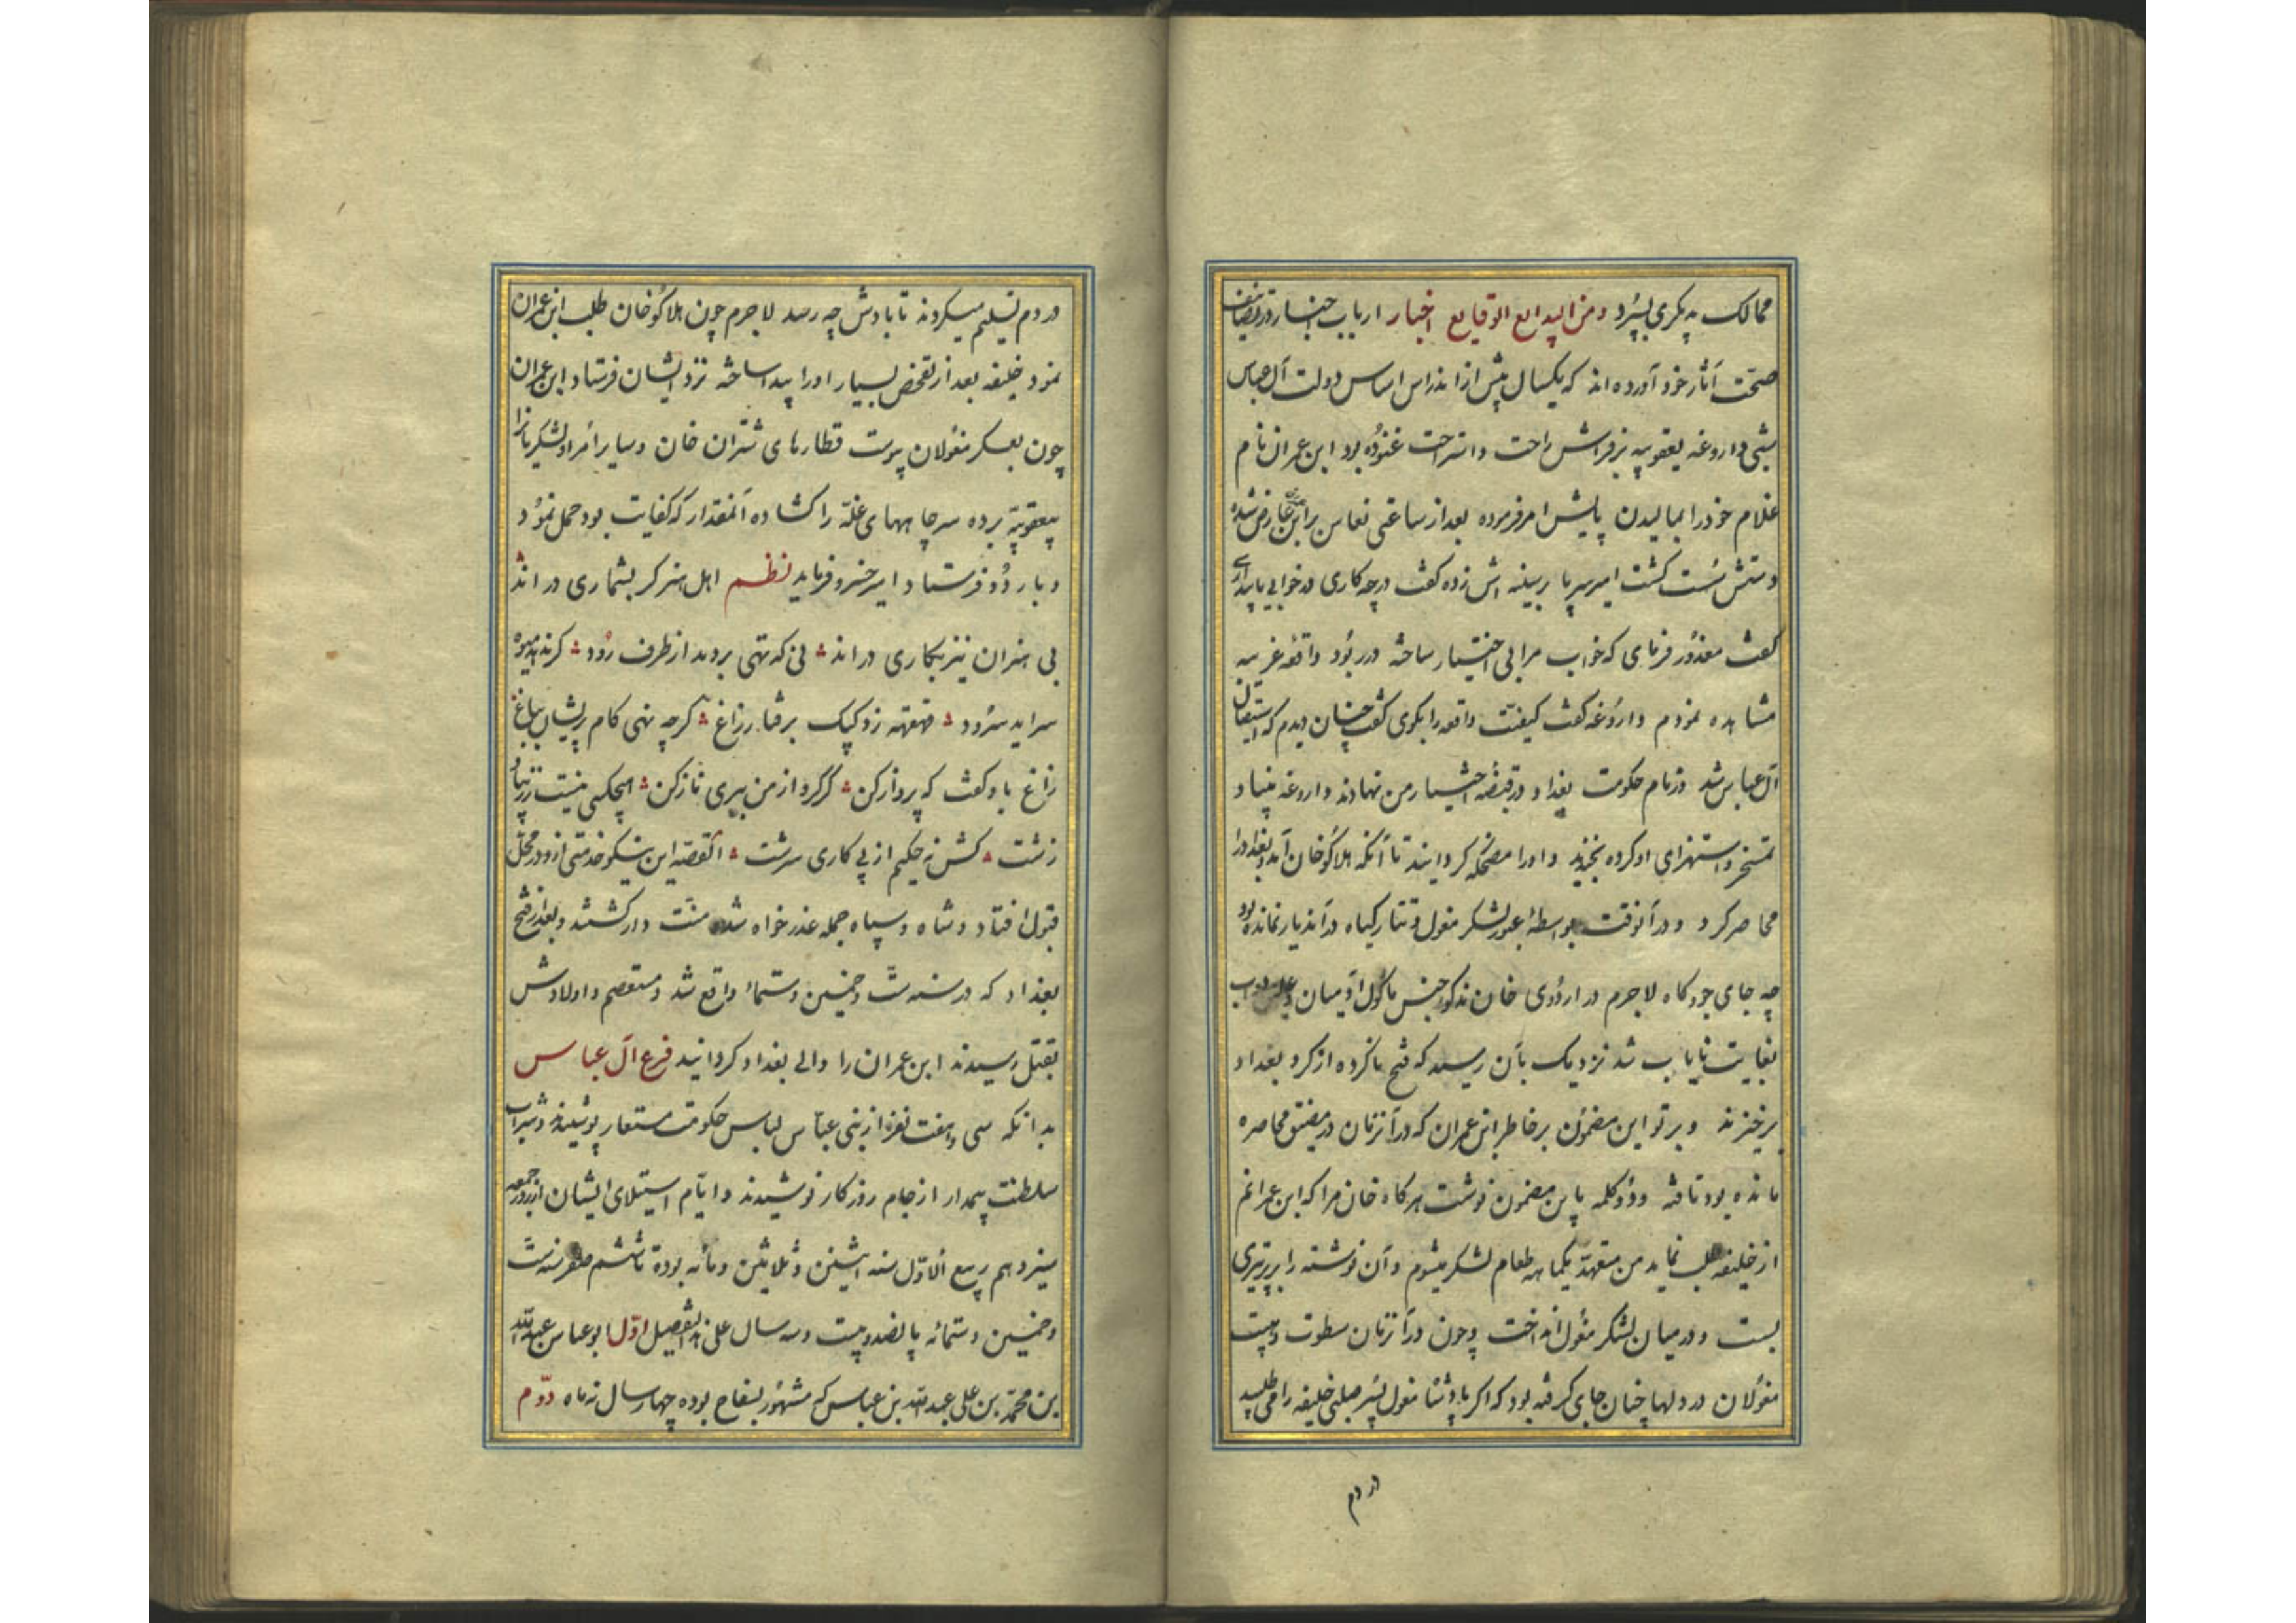 ممالک به پکری بسپرد ومن البدایع الوقایع اخبار ارباب اخبار در تصانیف
صحّت آثار خود آورده‌اند که یکسال پیش از اندراس اساس دولت آل عباس
شبی داروغه یعقوبیه بر فراش راحت واستراحت غنوده بود ابن عمران نام
غلام خود را بمالیدن پایش امر فرموده بعد از ساعتی نعاس بر ابن عمران عارض شده
دستش سست کشت امیر سر پا بر سینه اش زده کفت در چه کاری در خوابی یا بیداری
کفت معذور فرمای که خواب مرا بی اختیار ساخته در ربود واقعهٔ غریبه
مشاهده نمودم داروغه کفت کیفیّت واقعه را بکوی کفت چنان دیدم که استیصال
آل عباس شد وزمام حکومت بغداد در قبضهٔ اختیار من نهادند داروغه بنیاد
تمسخر واستهزای او کرده بخندید واورا مضحکه کردانیند تا آنکه هلاکوخان آمد وبغداد را
محاصر کرد ودر آنوقت بواسطهٔ عبور لشکر مغول وتتار کیاه در آندیار نمانده بود
چه جای جو وکاه لاجرم در اردوی خان مذکور جنس ماکول آدمیان وعلف دواب
بغایت نایاب شد نزدیک بآن رسید که فتح ناکرده از کرد بغداد
برخیزند وپرتو این مضمون بر خاطر ابن عمران که در آنزمان در مضیق محاصره
مانده بود تافته ودو کلمه باین مضمون نوشت هر کاه خان مرا که ابن عمرانم
از خلیفه طلب نماید من متعهّد یکماهه طعام لشکر میشوم وآن نوشته را بر تیری
بست ودر میان لشکر مغول انداخت وچون در آنزمان سطوت وهیبت
مغولان در دلها چنان جای کرفته بود که اکر پادشاه مغول پسر صلبی خلیفه را می طلبید
در دم
در دم تسلیم میکردند تا بادش چه رسد لاجرم چون هلاکوخان طلب ابن عمران
نمود خلیفه بعد از تفحّص بسیار اورا پیدا ساخته نزد ایشان فرستاد ابن عمران
چون بعسکر مغولان پیوست قطارهای شتران خان وسایر امرا ولشکریانرا
بیعقوبیّه برده سر چاههای غلّه را کشاده آنمقدار که کفایت بود حمل نمود
وبار دو فرستاد امیر خسرو فرماید نظم اهل هنر کر بشماری در اند
بی هنران نیز بکاری در اند نی که تهی بر دمد از طرف رود کر ندهد میوه
سراید سرود قهقهه زد کبک بر فتار زاغ کرچه نهی کام پریشان بباغ
زاغ باو کفت که پرواز کن کر کرو از من ببری ناز کن هیچکسی نیست ز زیبا و
زشت کش نه حکیم از پی کاری سرشت القصّه این نیکو خدمتی ازو در محلّ
قبول افتاد وشاه وسپاه جمله عذر خواه شده منّت دار کشتند وبعد از فتح
بغداد که در سنه ستّ وخمسین وستمائه واقع شد ومستعصم واولادش
بقتل رسیدند ابن عمران را والی بغداد کردانید فرع آل عباس
بدانکه سی وهفت نفر از بنی عباس لباس حکومت مستعار پوشیدند وشراب
سلطنت بیمدار از جام روزکار نوشیدند وایّام استیلای ایشان از روز جمعه
سیزدهم ربیع الاوّل سنه اثنین وثلاثین ومائه بوده تا ششم صفر سنه ستّ
وخمسین وستمائه پانصد وبیست وسه سال علی هذا التفصیل اوّل ابو عباس عبدالله
بن محمّد بن علی عبدالله بن عباس که مشهور بسفاح بوده چهار سال نه ماه دوّم